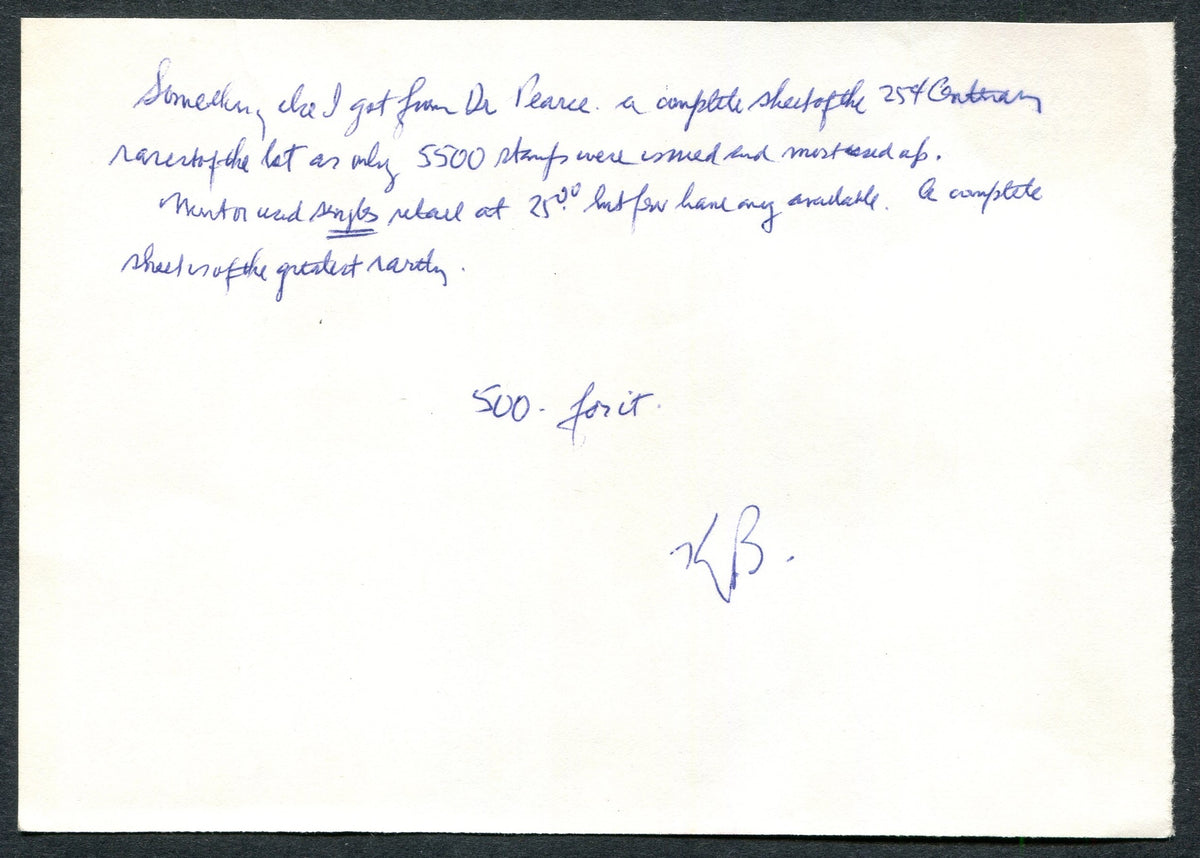 Something else I got from Dr Pearce. a complete sheet of the 25¢
rarest of the lot as only 5500 stamps were issued and most used up.
Mint or used singles retail at 25.00 but few have any available. A complete
sheet is of the greatest rarity.
500 - for it.
KB.